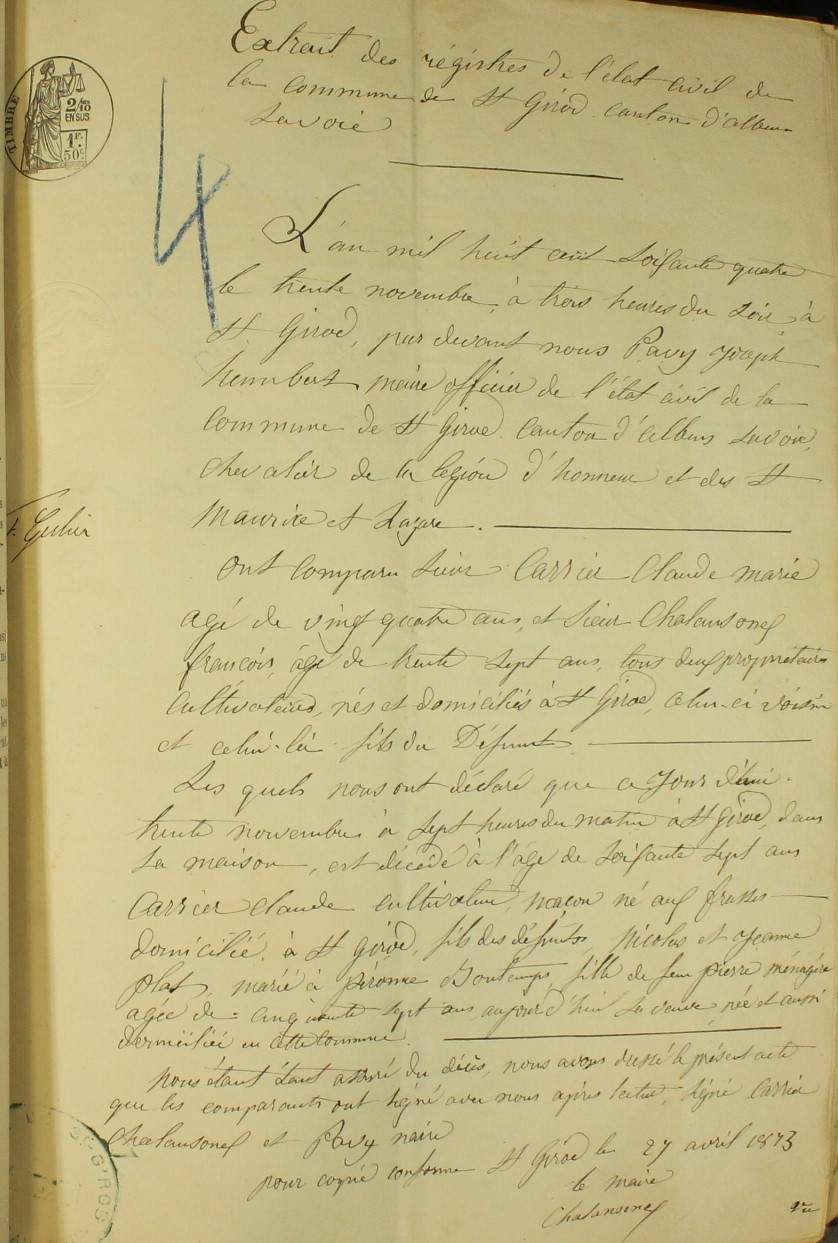 Extrait des régistres de l'état civil de
la commune de St Girod canton d'albens
Savoie
TIMBRE
2/10
EN SUS
1F.
50c
4
L'an mil huit cent soixante quatre
le trente novembre, à trois heures du soir, à
St Girod, par devant nous Pavy Joseph
humbert, maire officier de l'état civil de la
Commune de St Girod canton d'albens Savoie,
chevalier de la légion d'honneur et des St
Maurice et Lazare.
ont comparu Sieur Carrier Claude marie
agé de vingt quatre ans, et Sieur Chalansonex
francois, âgé de trente sept ans, tous deux propriétaires
Cultivateurs, nés et domiciliés à St Girod, celui-ci voisin
et celui-là fils du Défunt.
Les quels nous ont déclaré que ce jour d'hui
trente novembre à sept heures du matin à St Girod, dans
sa maison, est décédé à l'âge de soixante sept ans
Carrier Claude cultivateur, maçon né aux frasses
domicilié à St Girod, fils des défunts Nicolas et Jeanne
plat, marié à péronne Bontemps, fille de feu pierre ménagère
agée de cinquante sept ans aujourd'hui sa veuve née et aussi
domiciliée en cette commune.
nous étant assuré du décès, nous avons dressé le présent acte
que les comparants ont signé avec nous après lecture, signé Carrier
Chalansonex et Pavy maire
pour copie conforme St Girod le 27 avril 1873
le maire
Chalansonex
Vu
ST-GIROD